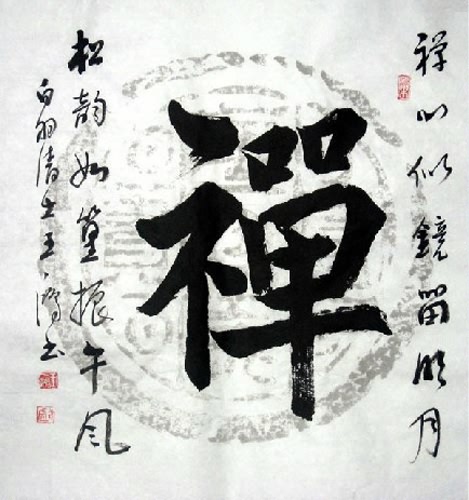 禅心似鏡留明月
禪
松韵如篁振午风
白羽清士王书